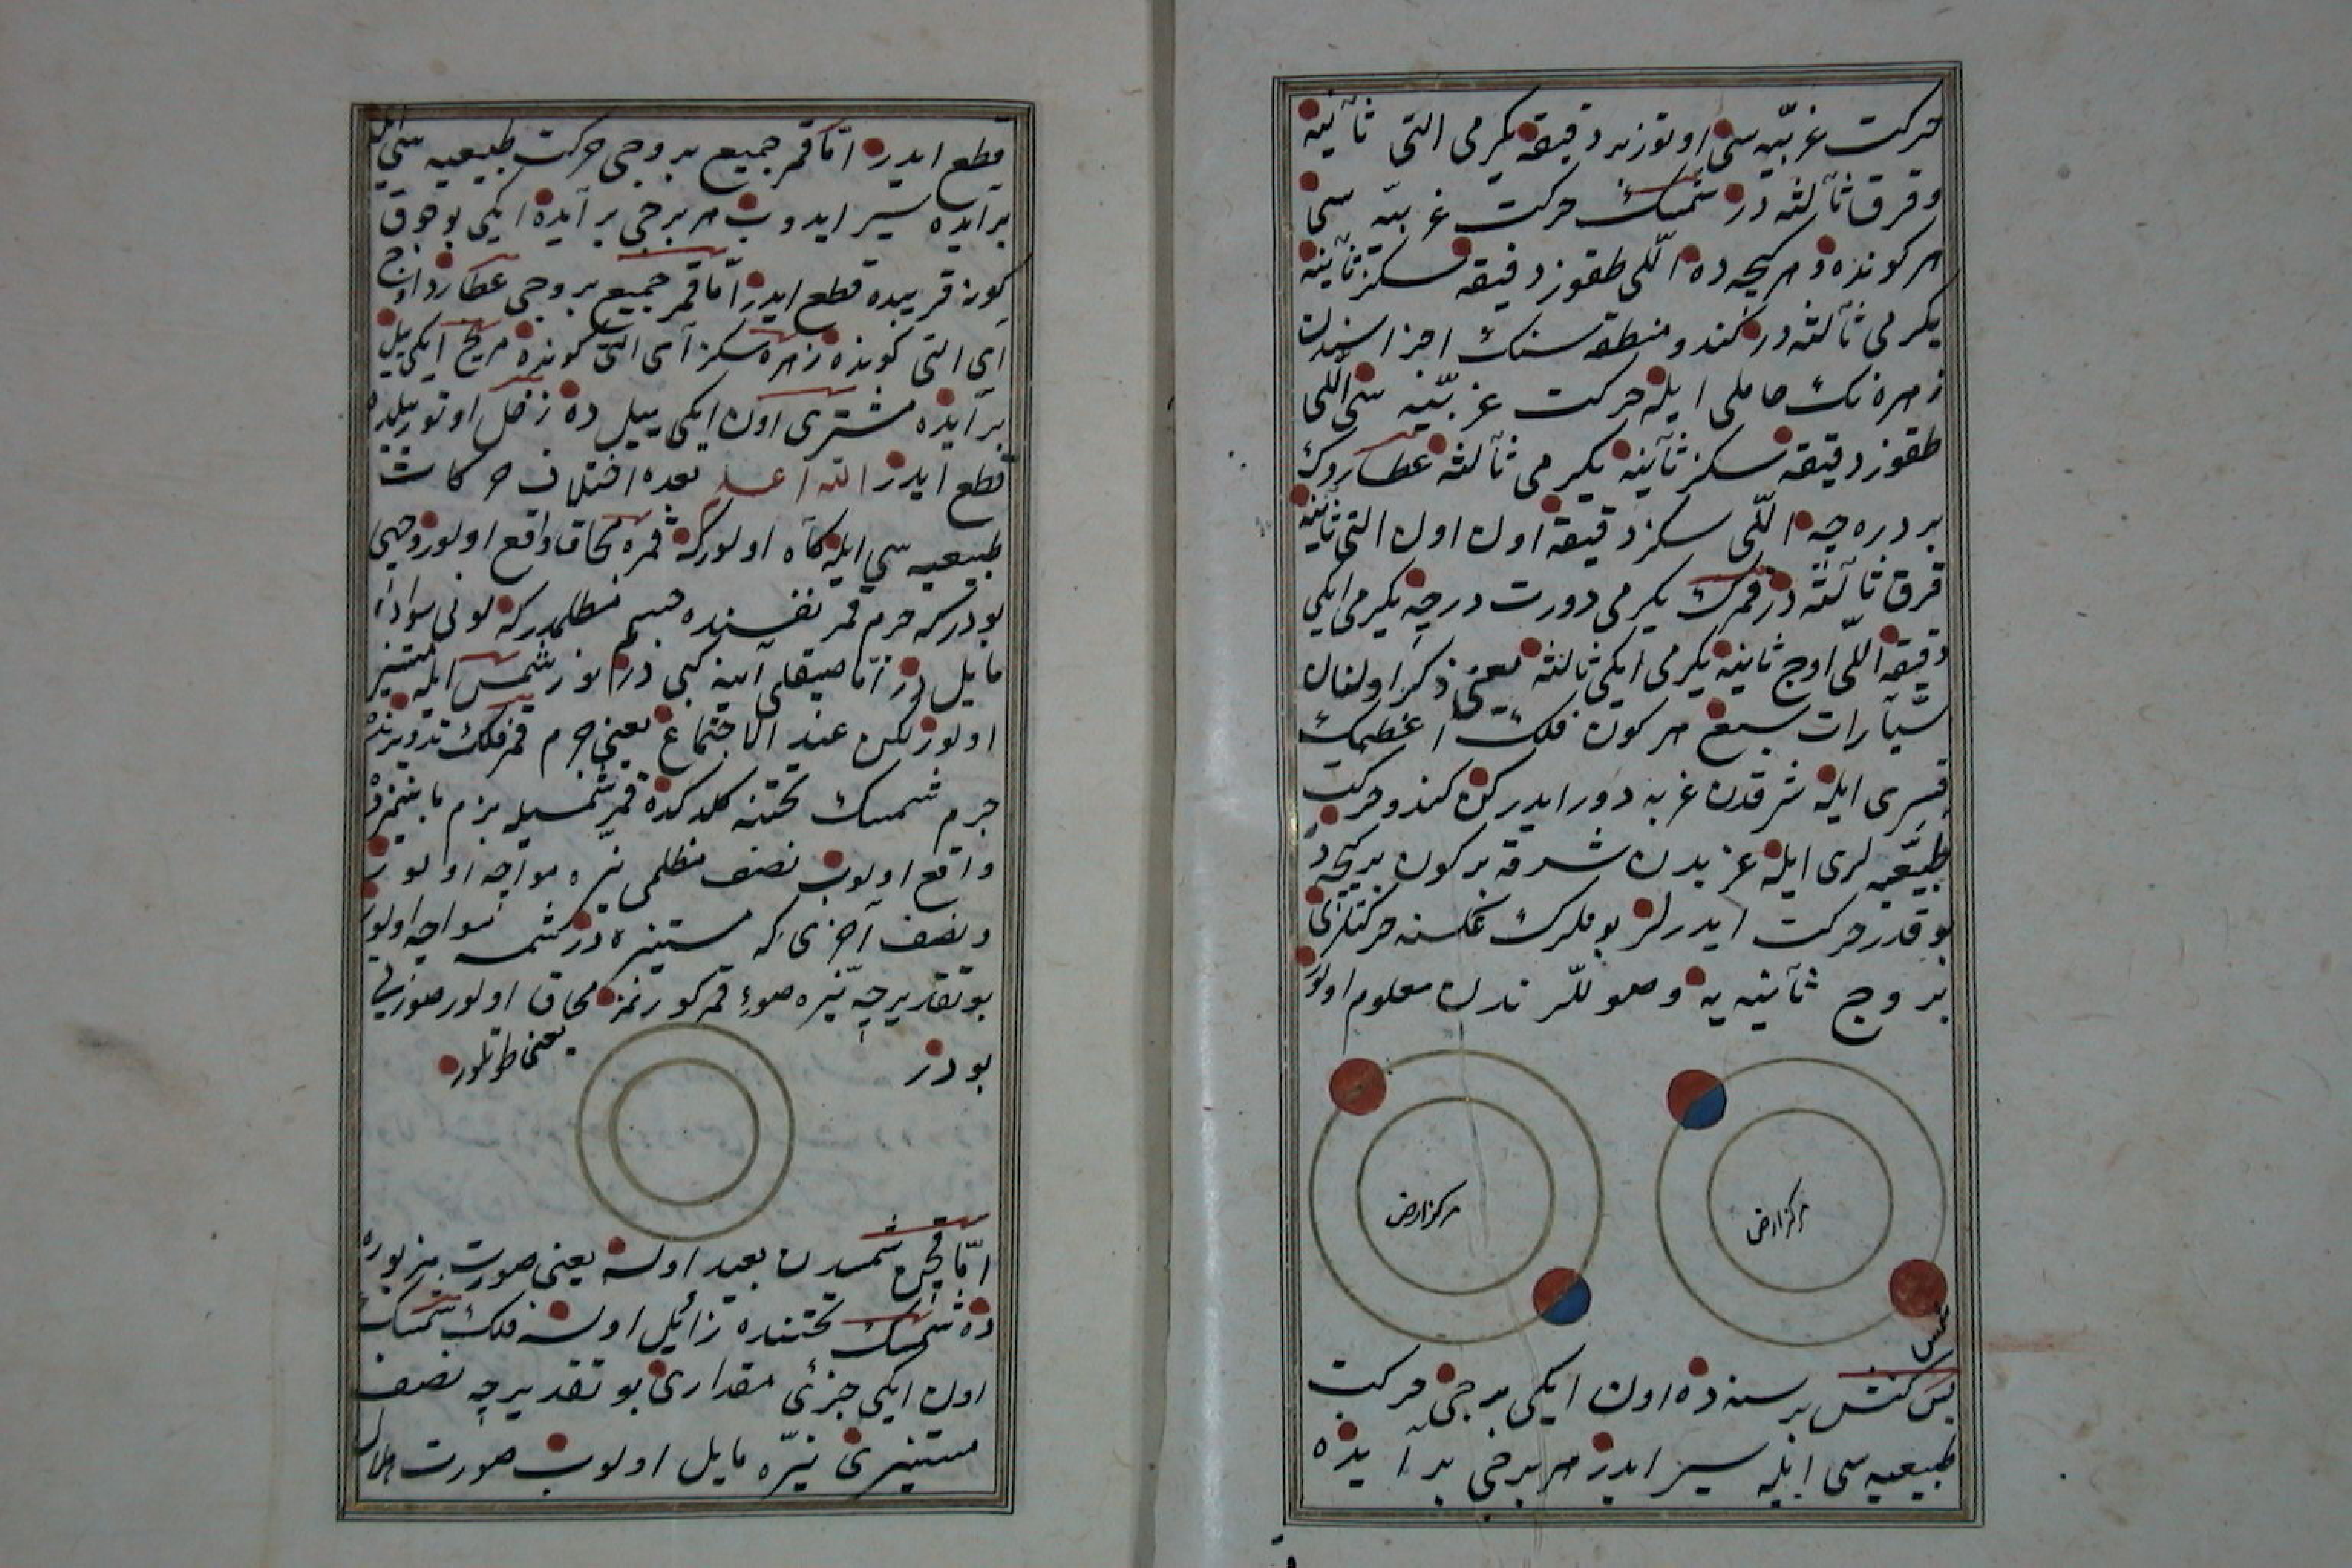 حركت غربيّه سى اوتوز بر دقيقه يكرمى التى ثانيه
و قرق ثالثه در شمسك حركت غربيّه سى
هر كونده و هر كيجه ده اللّى طقوز دقيقه سكز ثانيه
يكرمى ثالثه در كندو منطقه سنك اجزاسندن
زهره نك حاملى ايله حركت غربيّه سى اللّى
طقوز دقيقه سكز ثانيه يكرمى ثالثه عطاردك
بر درجه اللّى سكز دقيقه اون اون التى ثانيه
قرق ثالثه در قمرك يكرمى دورت درجه يكرمى ايكى
دقيقه اللّى اوج ثانيه يكرمى ايكى ثالثه يعنى ذكر اولنان
سيّارات سبع هر كون فلك اعظمك
قسرى ايله شرقدن غربه دور ايدركن كندو حركت
طبيعيّه لرى ايله غربدن شرقه بر كون بر كيجه ده
بو قدر حركت ايدرلر بو فلكك عكسنه حركتلرى
بروج ثانيه يه وصوللرندن معلوم اولور
مركز ارض
مركز ارض
شمس
پس كنش بر سنه ده اون ايكى برجى حركت
طبيعيه سى ايله سير ايدر هر برجى بر آيده
قطع ايدر امّا قمر جميع بروجى حركت طبيعيه سى ايله
بر آيده سير ايدوب هر برجى بر آيده ايكى بوجوق
كونه قريبده قطع ايدر امّا قمر جميع بروجى عطارد اون اوج
آى التى كونده زهره سكز آى التى كونده مريخ ايكى يل
بر آيده مشترى اون ايكى ييل ده زحل اوتوز يلده
قطع ايدر الله اعلم بعده اختلاف حركات
طبيعيه سى ايله كاه اولوركه قمره محاق واقع اولور وجهى
بودركه جرم قمر نفسنده جسم مظلمدركه لونى سواده
مايل در امّا صيقلى آينه كبى در نور شمس ايله مستنير
اولور لكن عند الاجتماع يعنى جرم قمر فلك تدويرنده
جرم شمسك تحتنه كلدكده قمر شمسيله بزم مابينمزده
واقع اولوب نصف مظلمى بزه مواجه اولوب
و نصف آخرى كه مستنيره در شمسه مواجه اولور
بو تقديرجه بزه ضوء قمر كورنمز محاق اولور صورتى
بودر
يعنى طوتلور
امّا قچن شمسدن بعيد اولسه يعنى صورت مزبوره
ده شمسك تحتنده زائل اولسه فلك شمسك
اون ايكى جزئى مقدارى بو تقديرجه نصف
مستنيرى بزه مايل اولوب صورت هلال